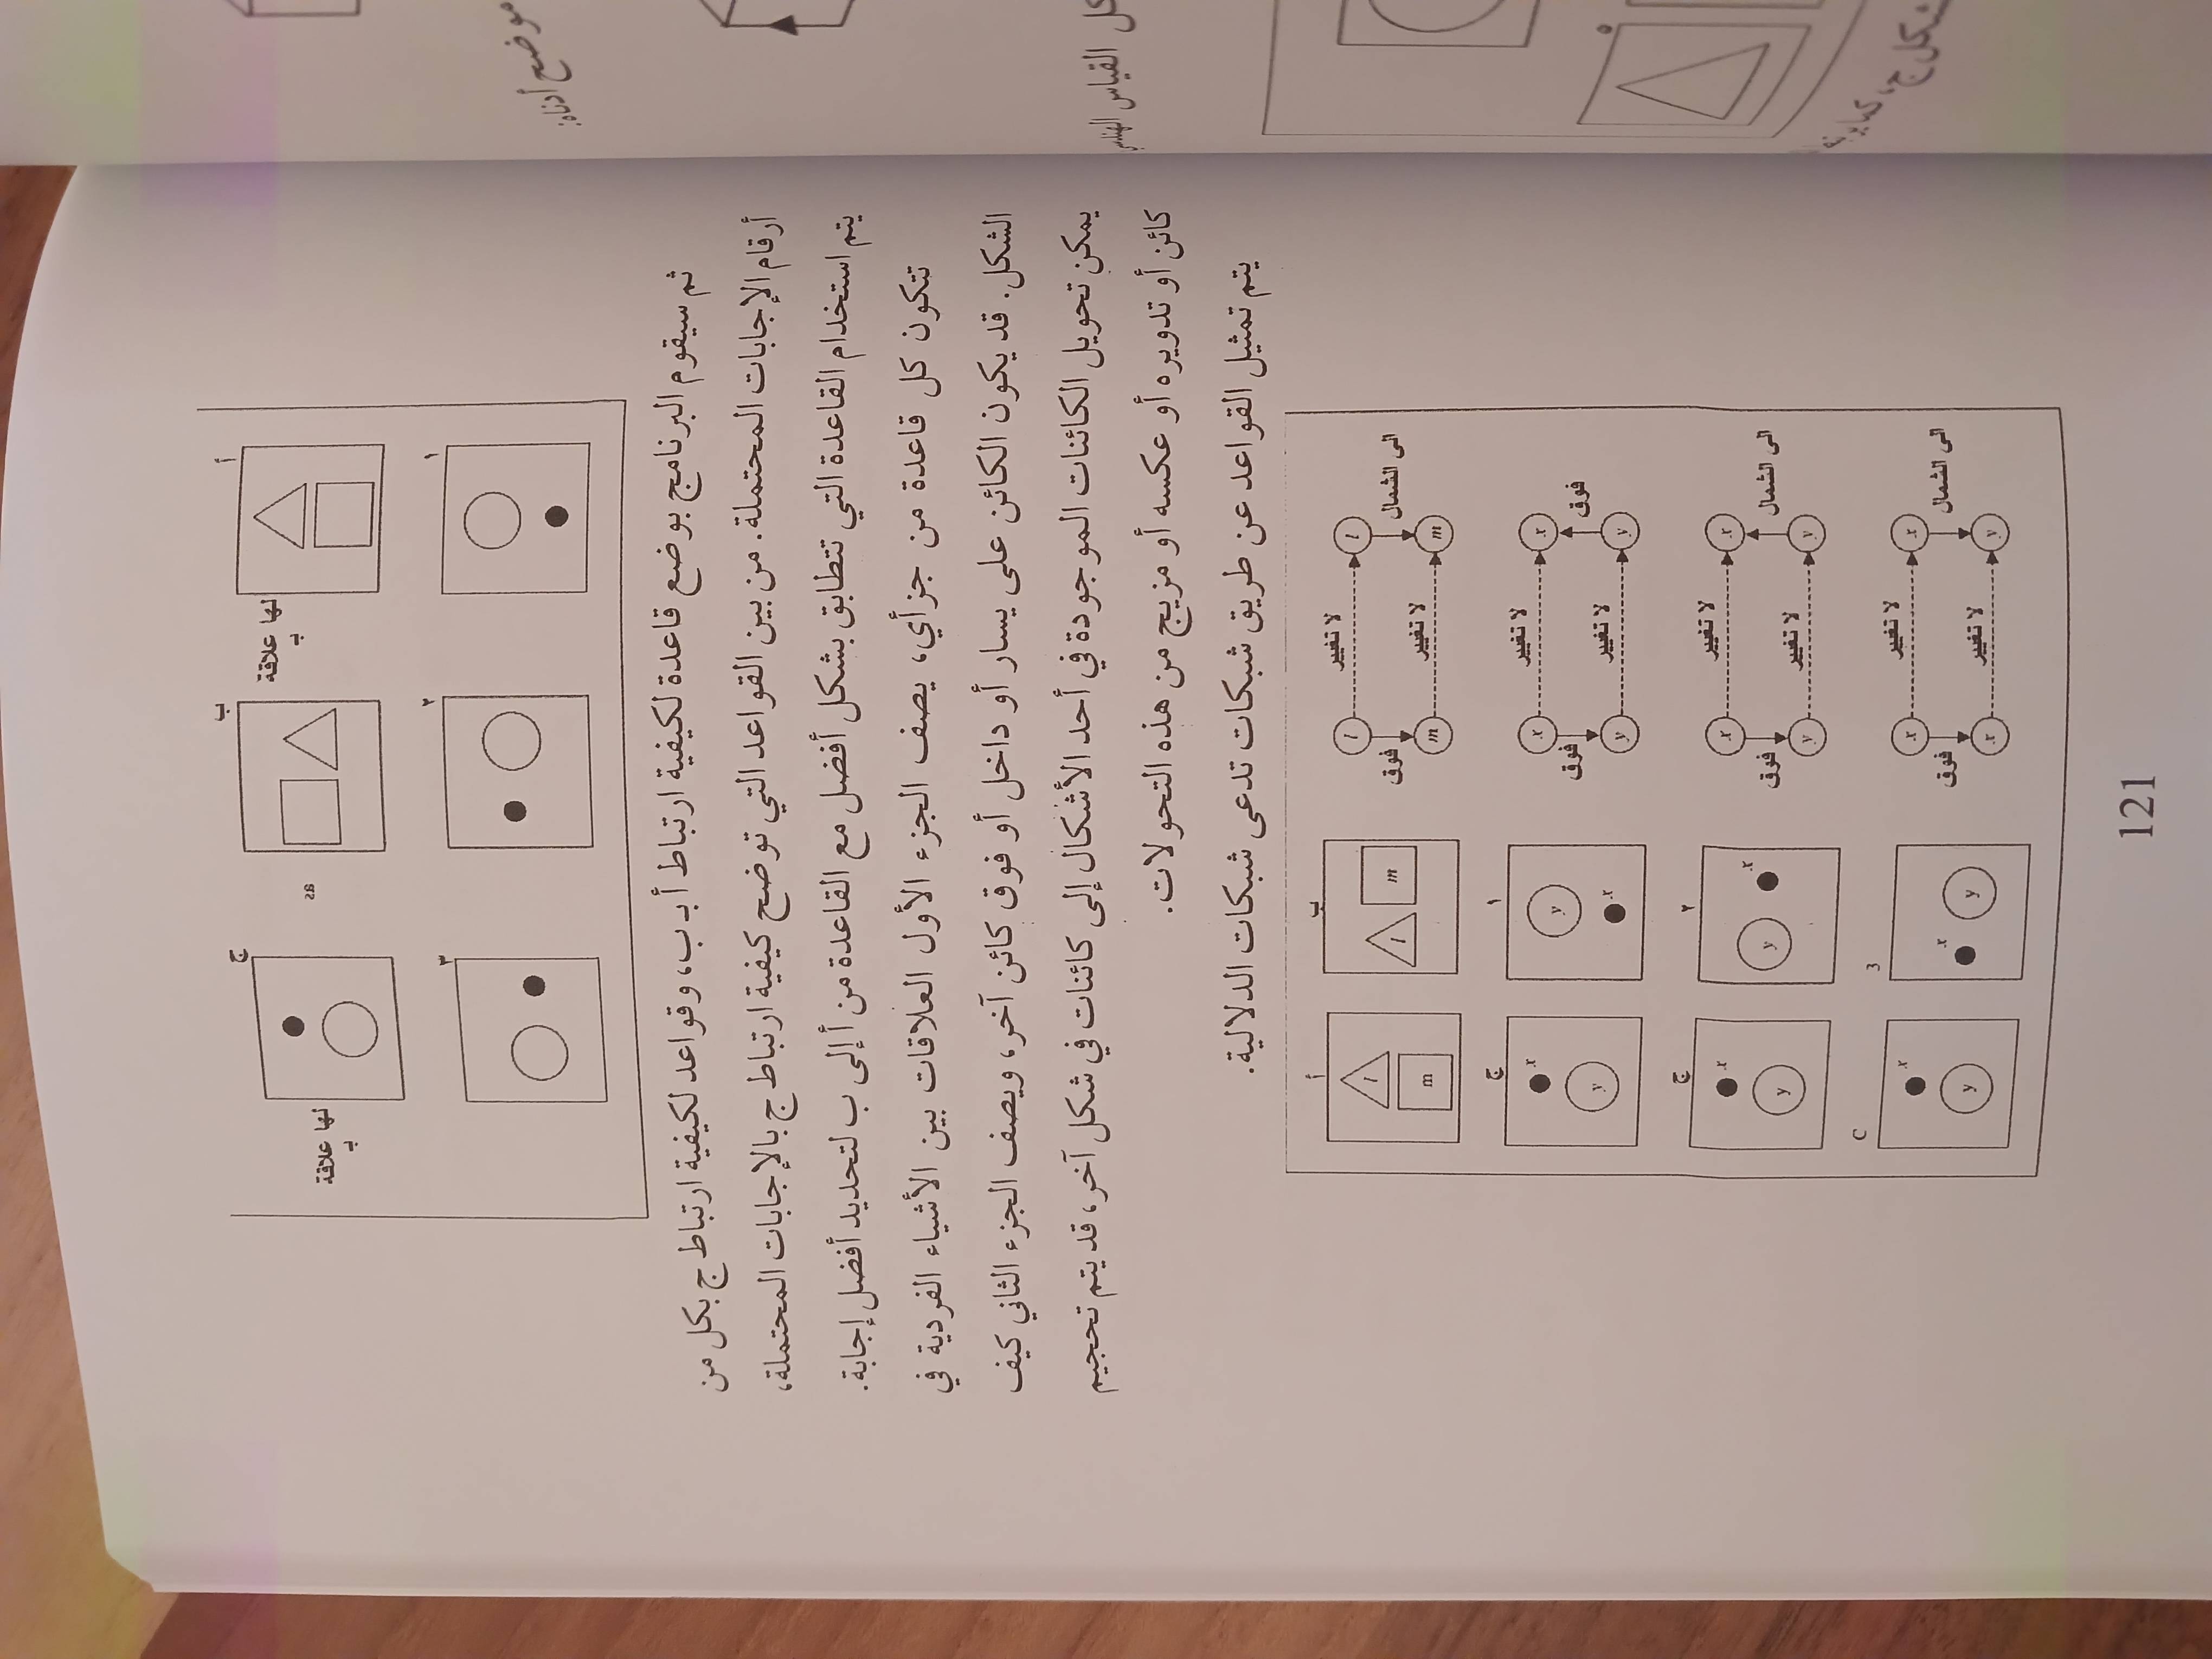 أ
لها علاقة
بـ
ب
as
ج
لها علاقة
بـ
١
٢
٣
ثم سيقوم البرنامج بوضع قاعدة لكيفية ارتباط أ ب ب، وقواعد لكيفية ارتباط ج بكل من
أرقام الإجابات المحتملة. من بين القواعد التي توضح كيفية ارتباط ج بالإجابات المحتملة،
يتم استخدام القاعدة التي تتطابق بشكل أفضل مع القاعدة من أ إلى ب لتحديد أفضل إجابة.
تتكون كل قاعدة من جزأي، يصف الجزء الأول العلاقات بين الأشياء الفردية في
الشكل. قد يكون الكائن على يسار أو داخل أو فوق كائن آخر، ويصف الجزء الثاني كيف
يمكن تحويل الكائنات الموجودة في أحد الأشكال إلى كائنات في شكل آخر، قد يتم تحجيم
كائن أو تدويره أو عكسه أو مزيج من هذه التحولات.
يتم تمثيل القواعد عن طريق شبكات تدعى شبكات الدلالية.
أ
l
m
ب
l
m
l
فوق
m
لا تغيير
لا تغيير
l
الى الشمال
m
ج
x
y
١
y
x
x
فوق
y
لا تغيير
لا تغيير
x
فوق
y
ج
x
y
٢
y
x
x
فوق
y
لا تغيير
لا تغيير
x
الى الشمال
y
C
x
y
3
x
y
x
فوق
x
لا تغيير
لا تغيير
x
الى الشمال
y
121
موضح أدناه:
كل القياس الهندسي
٥
شكل ج،